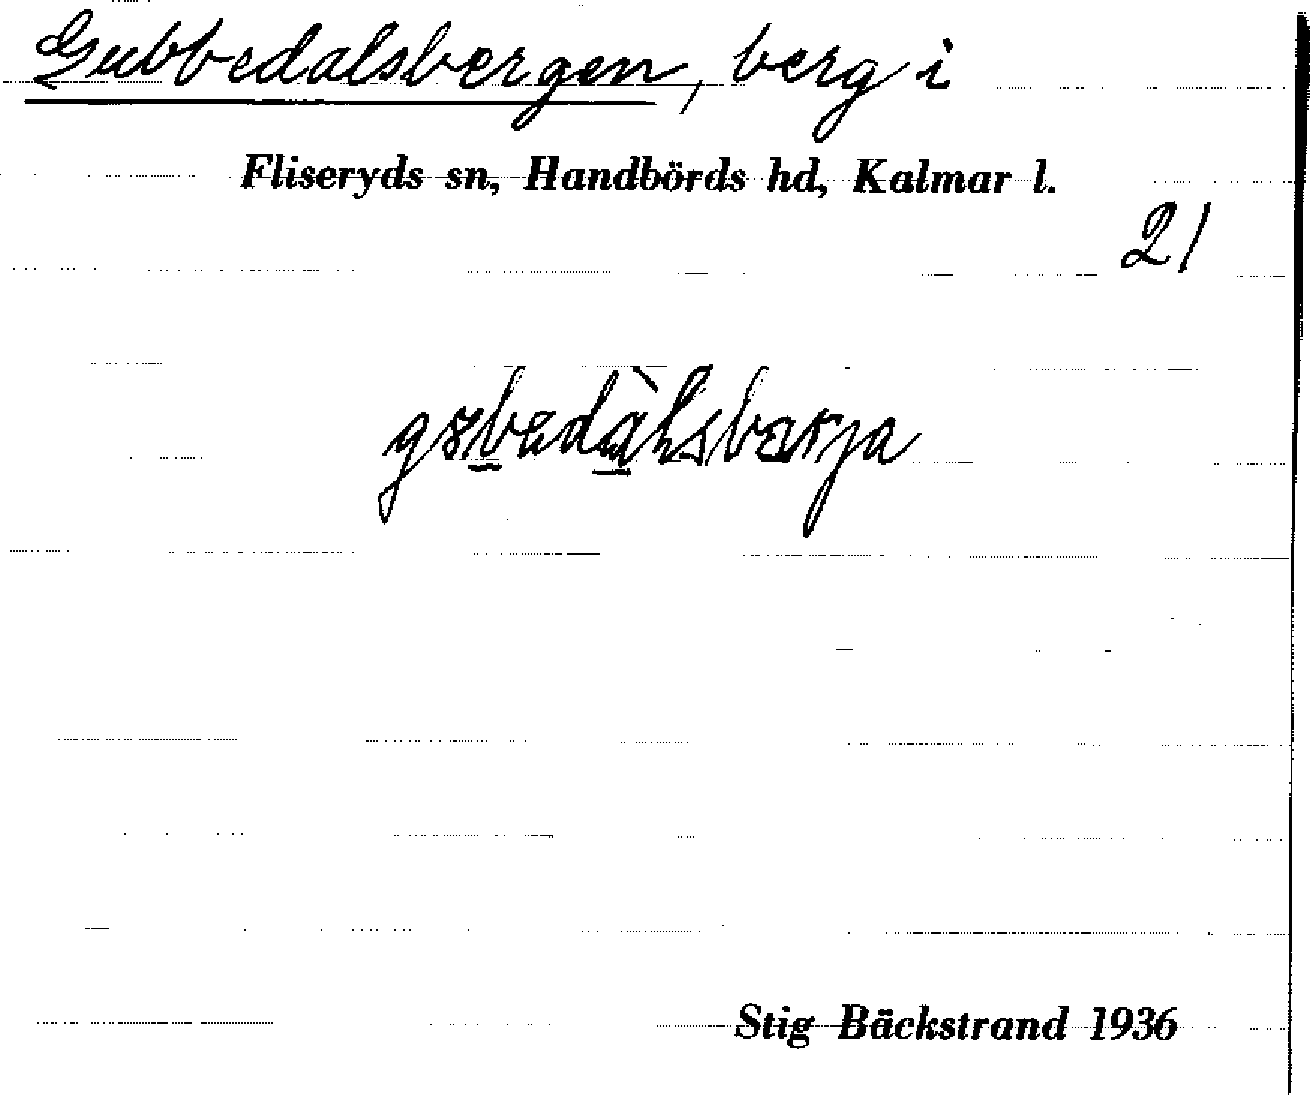 Gubbedalsbergen, berg i
Fliseryds sn, Handbörds hd, Kalmar l.
21
Stig Bäckstrand 1936